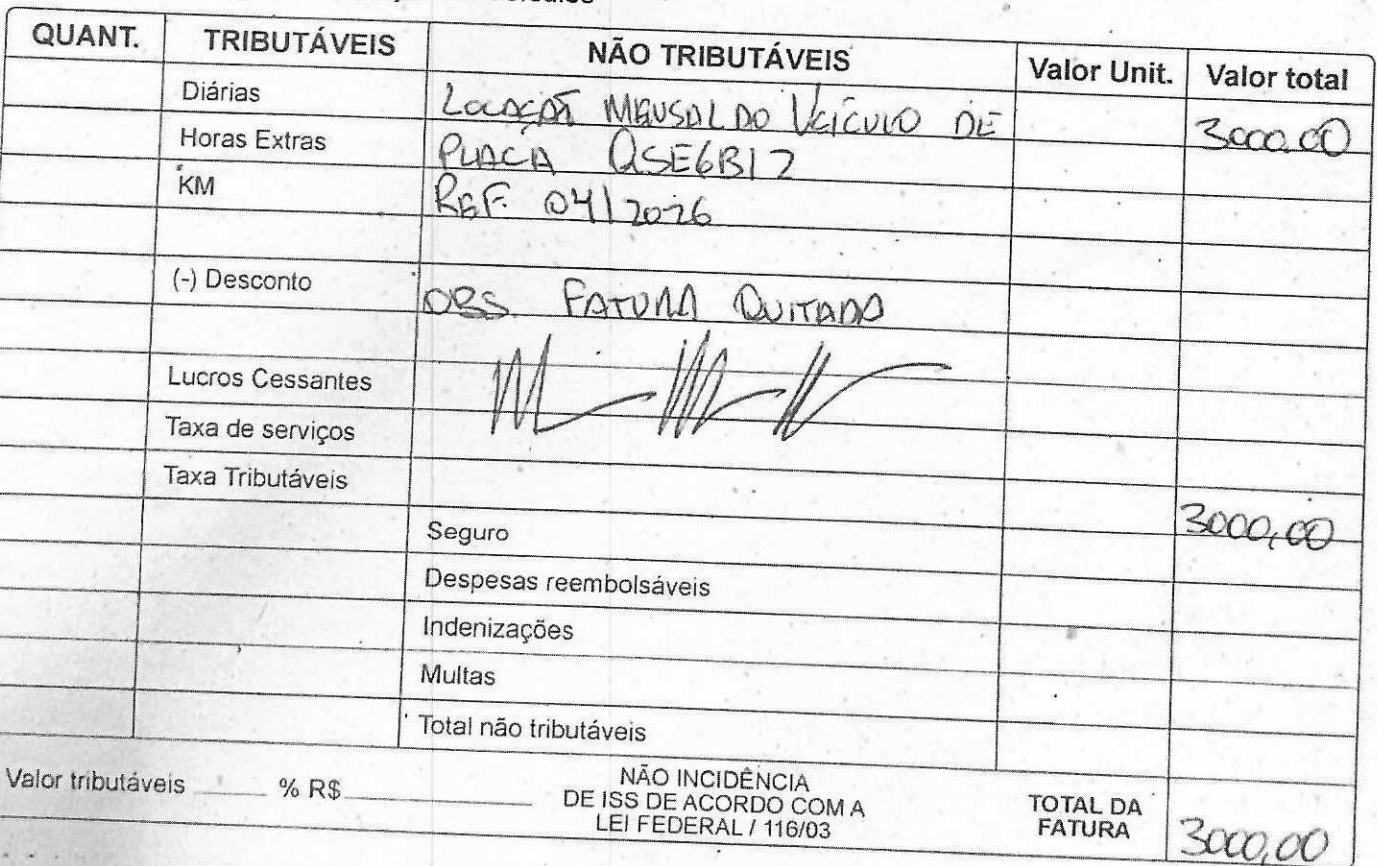 QUANT. TRIBUTÁVEIS NÃO TRIBUTÁVEIS Valor Unit. Valor total
Diárias LOCAÇÃO MENSAL DO VEÍCULO DE 3000.00
Horas Extras PLACA QSE6B17
KM REF. 04/2026
(-) Desconto OBS. FATURA QUITADA
Lucros Cessantes
Taxa de serviços
Taxa Tributáveis
Seguro 3000,00
Despesas reembolsáveis
Indenizações
Multas
Total não tributáveis
Valor tributáveis ______ % R$ ______________
NÃO INCIDÊNCIA
DE ISS DE ACORDO COM A
LEI FEDERAL / 116/03
TOTAL DA
FATURA
3000,00